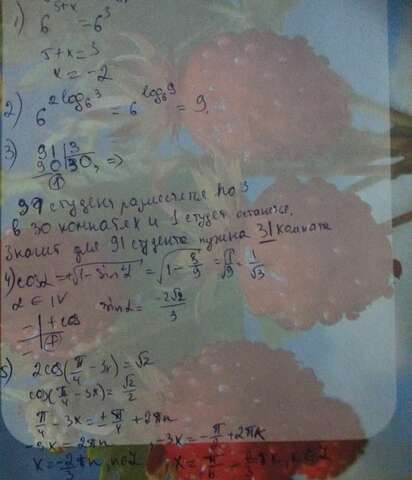 1) 6^{5+x} = 6^3
5+x=3
x = -2
2) 6^{2log_6 3} = 6^{log_6 9} = 9.
3) 91 | 3
90 | 30, =>
1
студент разместятся по 3
в 30 комнатах и 1 студент останется.
Значит для 91 студента нужна 31 комната
4) cosα = +√1 - sin²α = √1 - 8/9 = √1/9 =
α ∈ IV sinα = -2√2/3
= | + cos
5) 2cos(π/4 - 3x) = √2
cos(π/4 - 3x) = √2/2
π/4 - 3x = ± π/4 + 2πn
-3x = 2πn , -3x = + 2πk
x = -2/3 πn, n∈Z ,